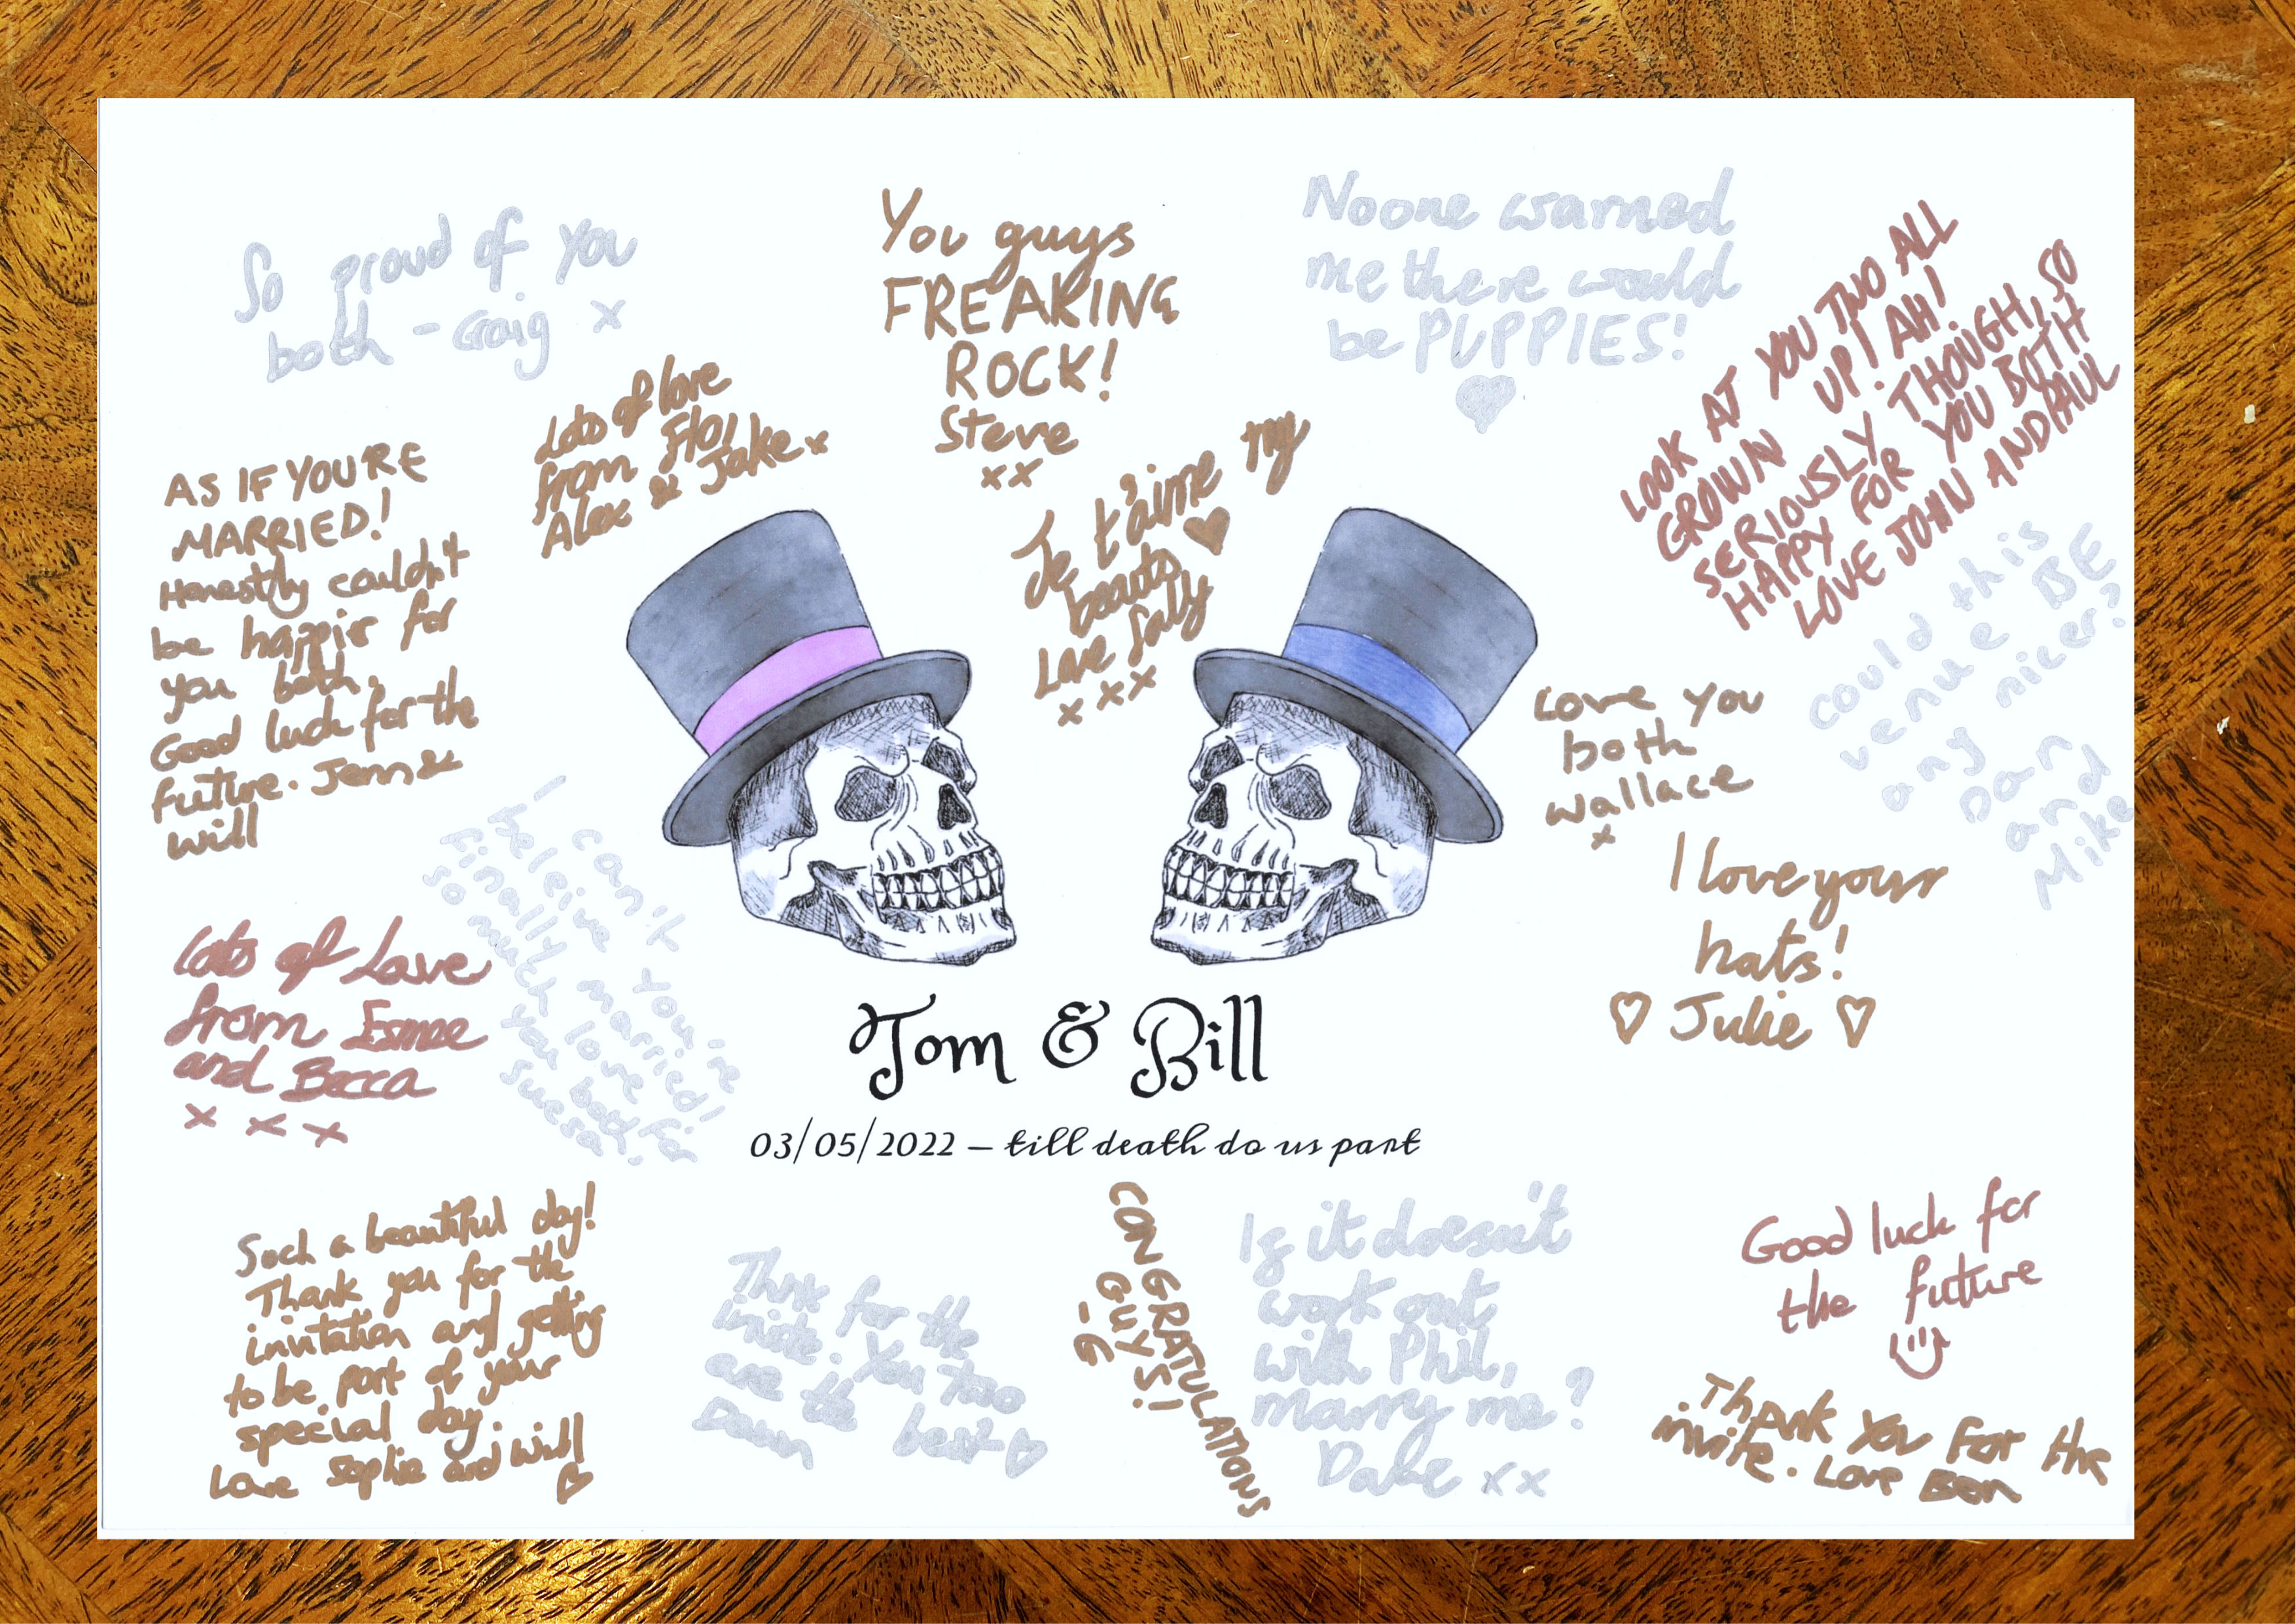 So proud of you
both - Craig x
You guys
FREAKING
ROCK!
Steve
xx
Noone warned
me there would
be PUPPIES!
LOOK AT YOU TWO ALL
GROWN UP! AH!
SERIOUSLY THOUGH, SO
HAPPY FOR YOU BOTH
LOVE JOHN AND PAUL
Lots of love
from Flo,
Alex & Jake x
AS IF YOU'RE
MARRIED!
Honestly couldn't
be happier for
you both.
Good luck for the
future. Jenn &
will
Je t'aime my
beauts
Love Sally
x x x
could this
venue BE
any nicer?
Dan
and
Mike
Love you
both
wallace
x
I love your
hats!
Julie
I can't
beleive you're
finally married!
so much love for
you both.
Lots of Love
from Esmee
and Becca
x x x
Tom & Bill
03/05/2022 – till death do us part
Such a beautiful day!
Thank you for the
invitation and getting
to be part of your
special day.
Love Sophie and Will
Thnk for the
invite. You two
are the best
Dawn
CONGRATULATIONS
GUYS!
-G
If it doesn't
work out
with Phil,
marry me?
Dave xx
Good luck for
the future
Thank You For the
invite. Love Ben